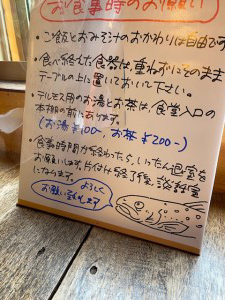 お食事時のお願い
・ご飯とおみそ汁のおかわりは自由です
・食べ終えた食器は、重ねずにそのまま
テーブルの上に置いておいて下さい。
・テルモス用のお湯とお茶は、食堂入口の
本棚の前に売ります。
(お湯 ¥100-、お茶 ¥200-)
・食事時間が終わったら、いったん退室を
お願いします。片付け終了後、談話室
になります。
よろしく
お願い致します